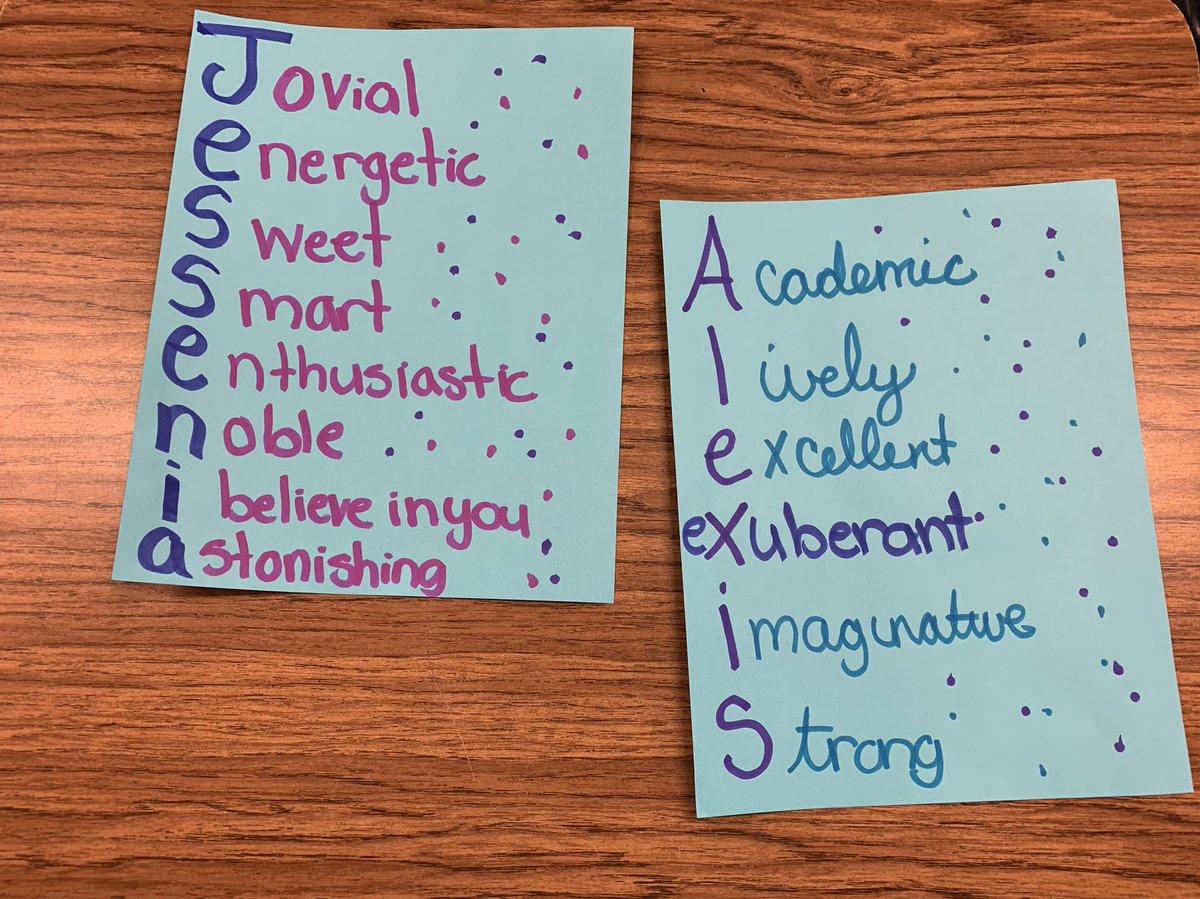 Jovial
energetic
sweet
smart
enthusiastic
noble
i believe in you
astonishing
Academic
lively
excellent
exuberant
imaginative
Strong